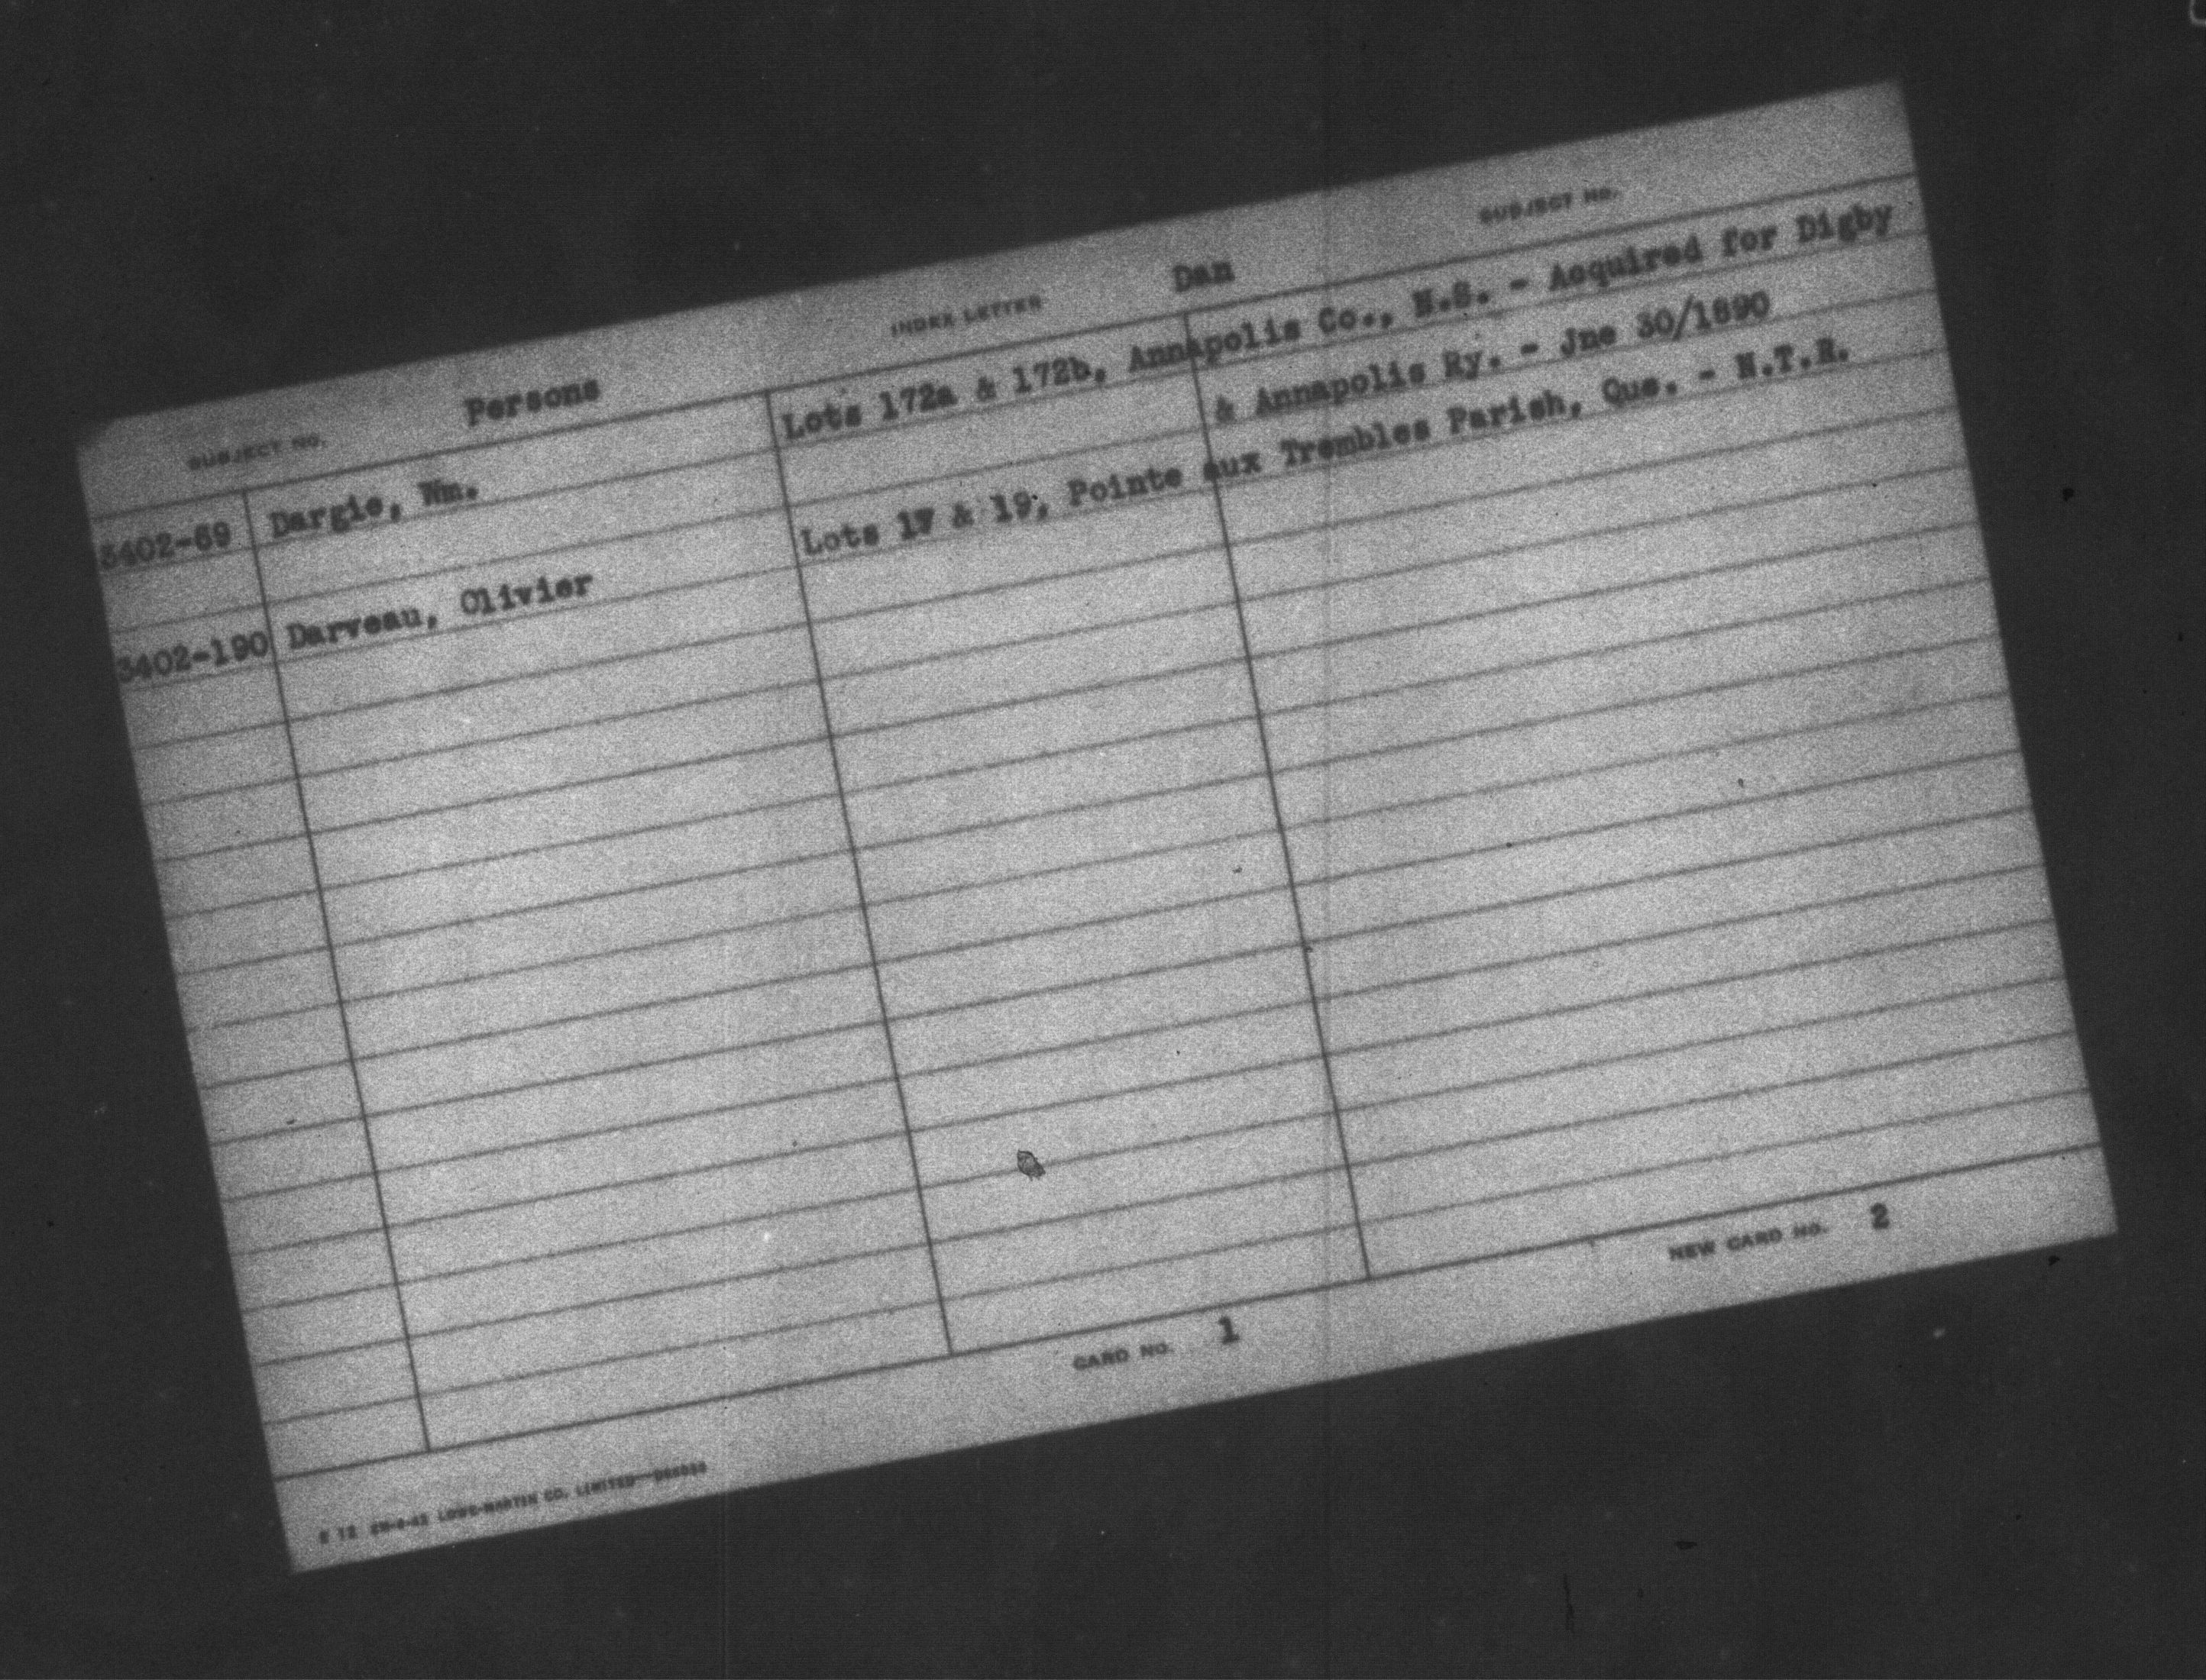 SUBJECT NO. Persons INDEX LETTER Dan SUBJECT NO.
3402-69 Dargie, Wm. Lots 172a & 172b, Annapolis Co., N.S. - Acquired for Digby
& Annapolis Ry. - Jne 30/1890
3402-190 Darveau, Olivier Lots 17 & 19, Pointe aux Trembles Parish, Que. - N.T.R.
CARD NO. 1 NEW CARD NO. 2
LOWE-MARTIN CO. LIMITED